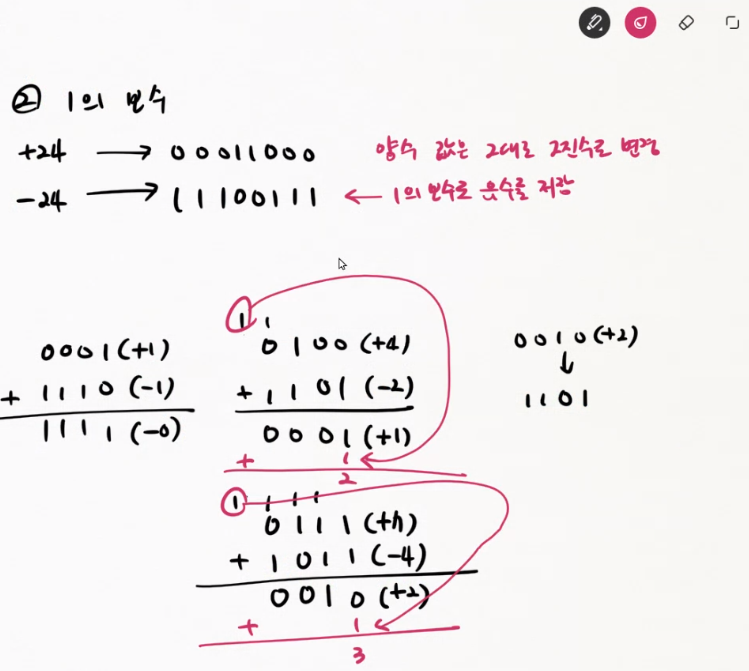 ② 1의 보수
+24 → 00011000 양수 값은 그대로 2진수로 변경
-24 → 11100111 ← 1의 보수로 음수를 저장
0001(+1)
+ 1110(-1)
1111(-0)
1 1
0100(+4)
+ 1101(-2)
0001(+1)
+ 1
2
0010(+2)
↓
1101
1 1 1 1
0111(+7)
+ 1011(-4)
0010(+2)
+ 1
3